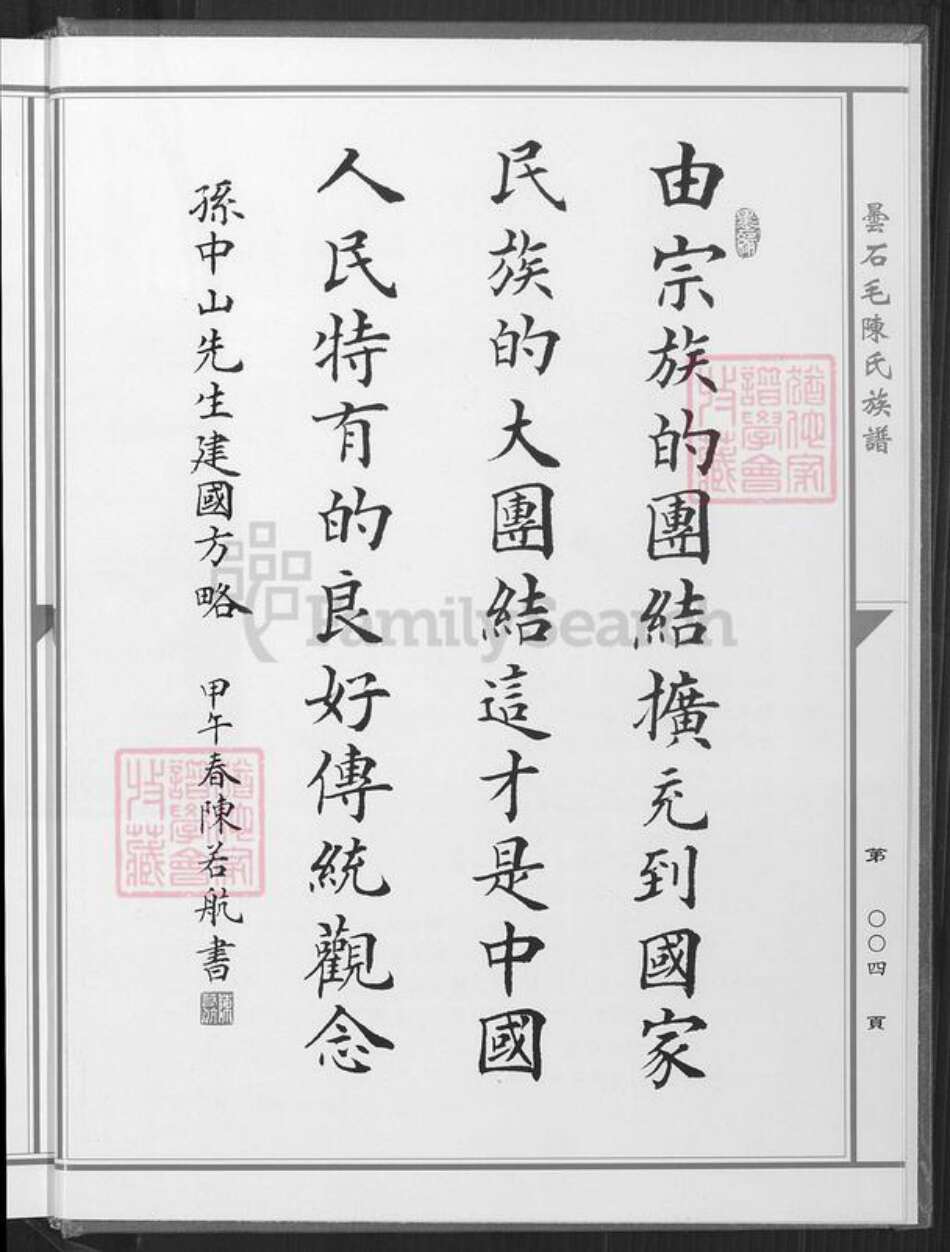 曇石毛陳氏族譜
第〇〇四頁
由宗族的團結擴充到國家
民族的大團結這才是中國
人民特有的良好傳統觀念
孫中山先生建國方略 甲午春陳若航書
譜學會
收藏
FamilySearch
譜學會
收藏